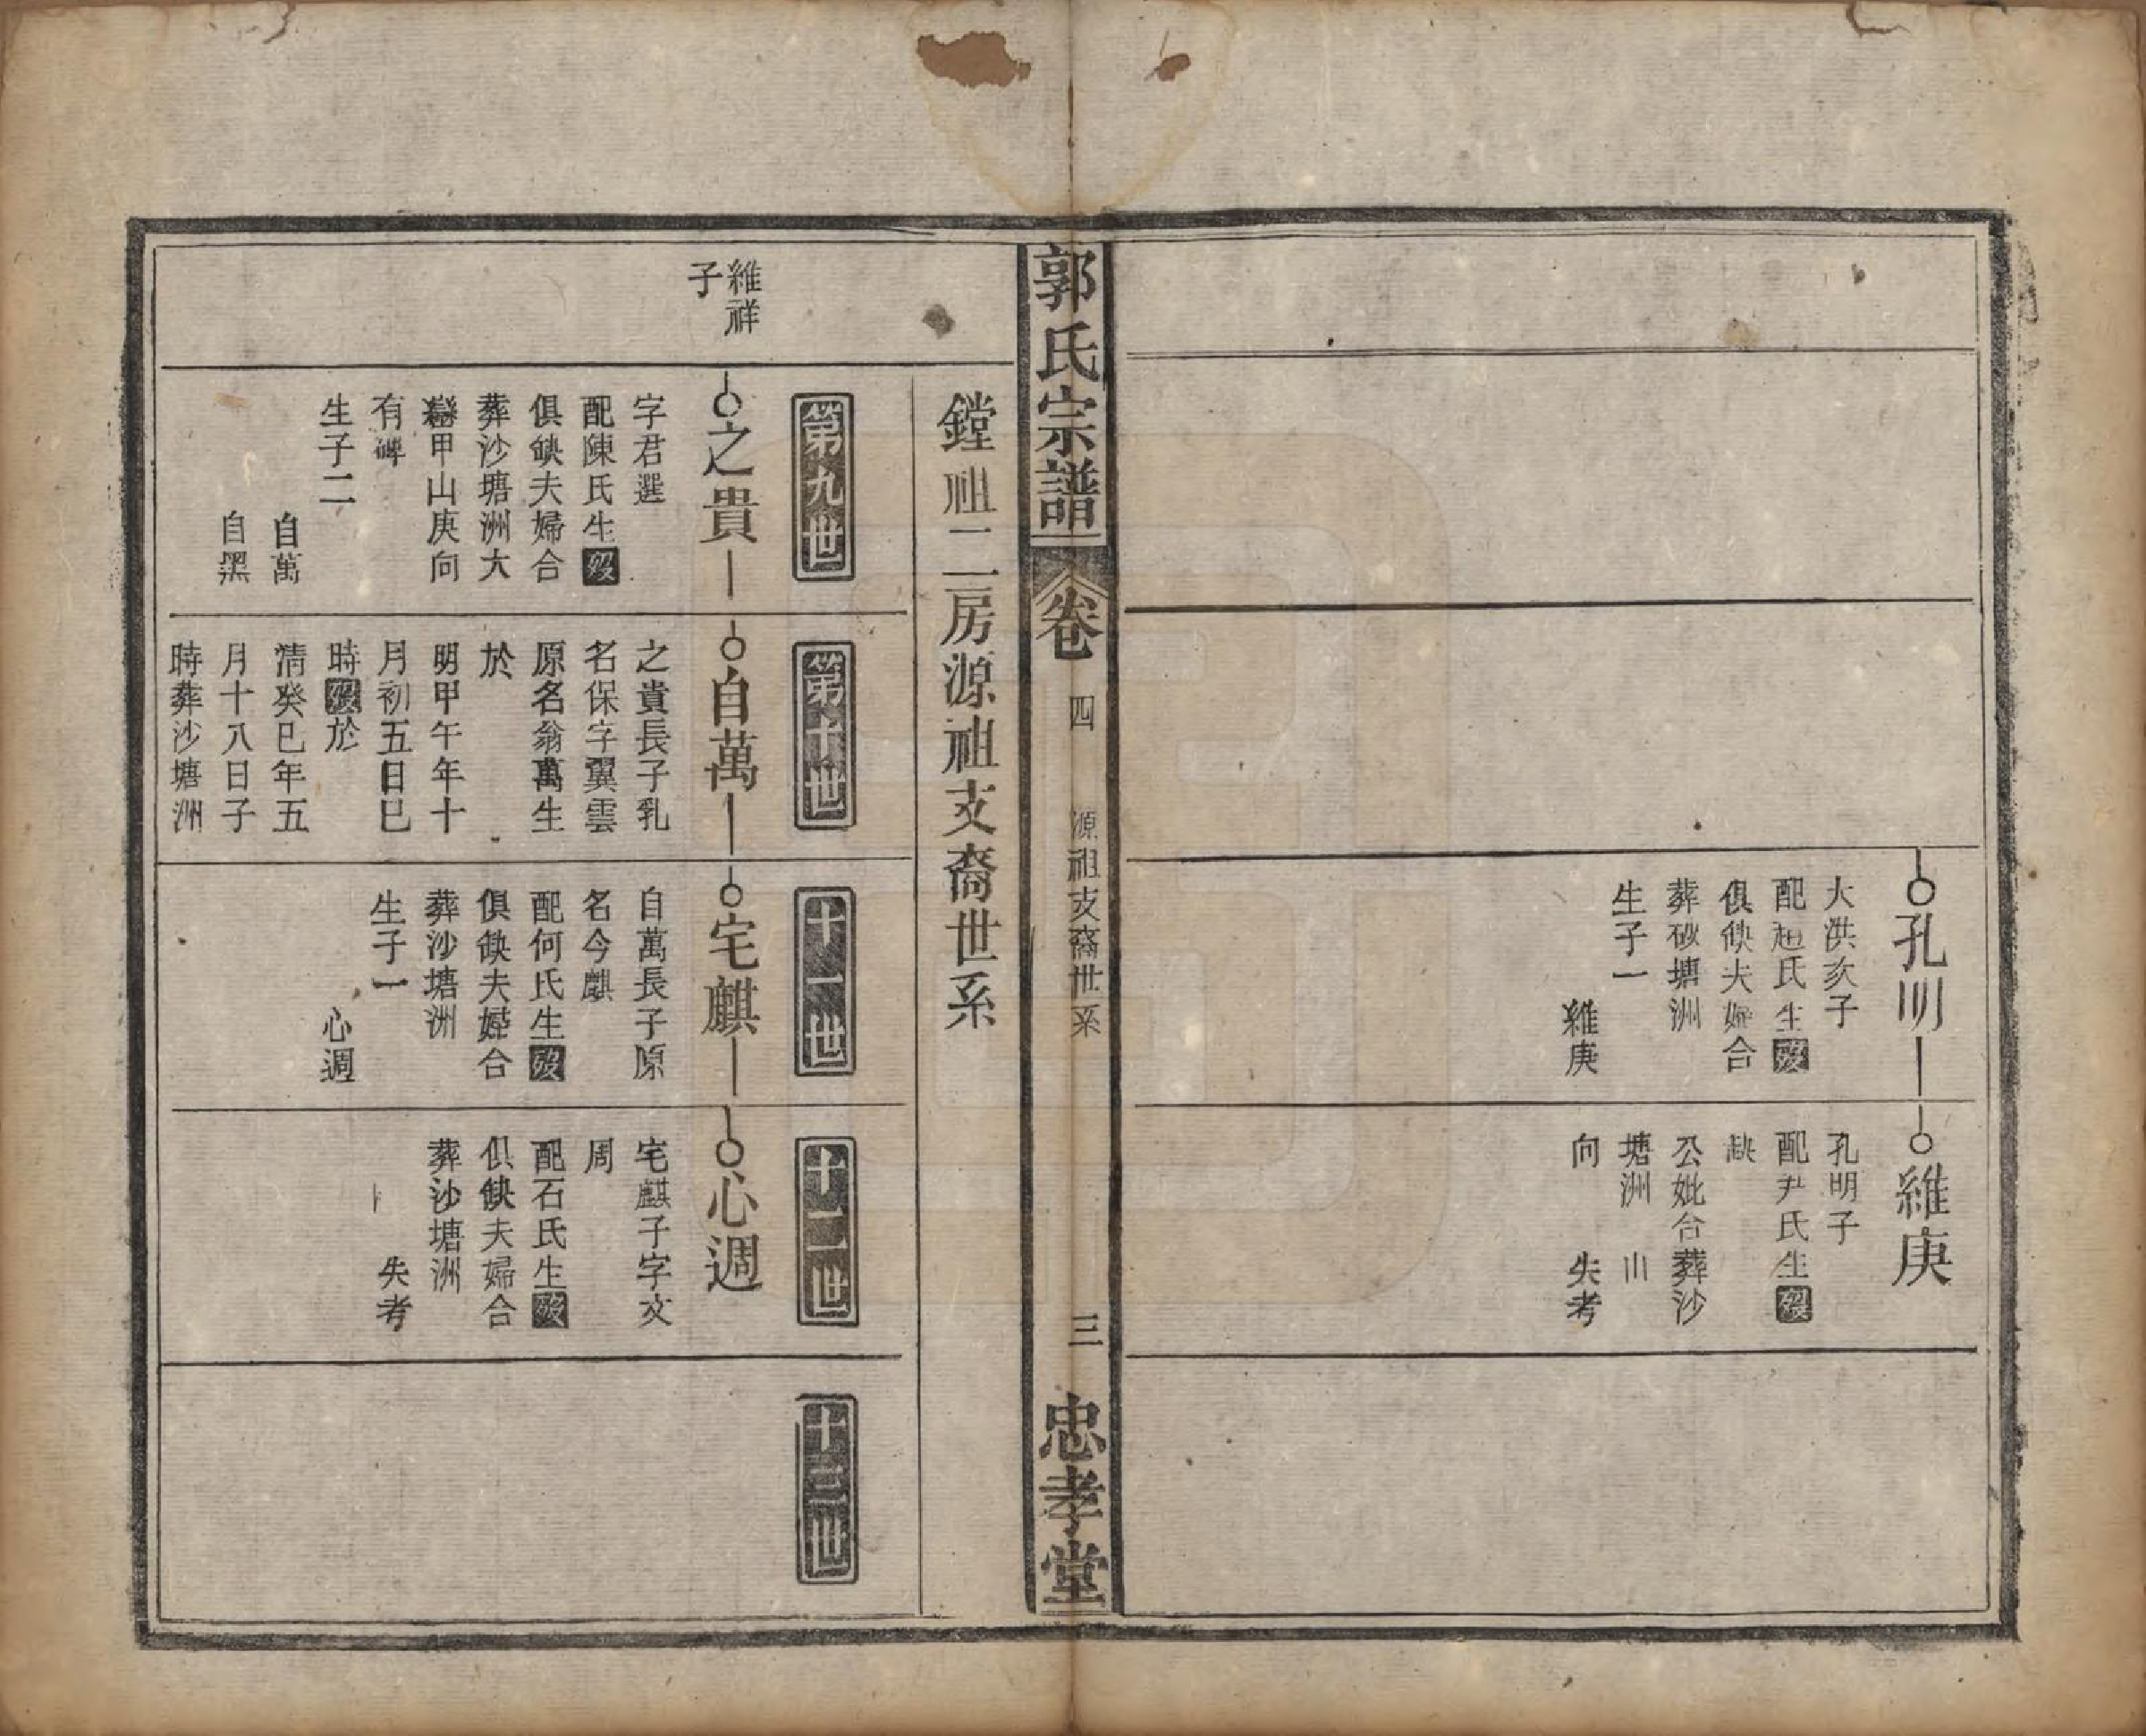 孔明
大洪次子
配趙氏生歿
俱缺夫婦合
葬砂塘洲
生子一
維庚
維庚
孔明子
配尹氏生歿
缺
公妣合葬沙
塘洲 山
向 失考
郭氏宗譜 卷 四 源祖支裔世系 三 忠孝堂
鏜祖二二房源祖支裔世系
第九世
第十世
十一世
十二世
十三世
維祥
子
之貴
字君選
配陳氏生歿
俱缺夫婦合
葬沙塘洲大
甲山庚向
有碑
生子二
自萬
自黑
自萬
之貴長子乳
名保字翼雲
原名翁萬生
於
明甲午年十
月初五日巳
時歿於
清癸巳年五
月十八日子
時葬沙塘洲
宅麒
自萬長子原
名今麒
配何氏生歿
俱缺夫婦合
葬沙塘洲
生子一
心週
心週
宅麒子字文
周
配石氏生歿
俱缺夫婦合
葬沙塘洲
失考